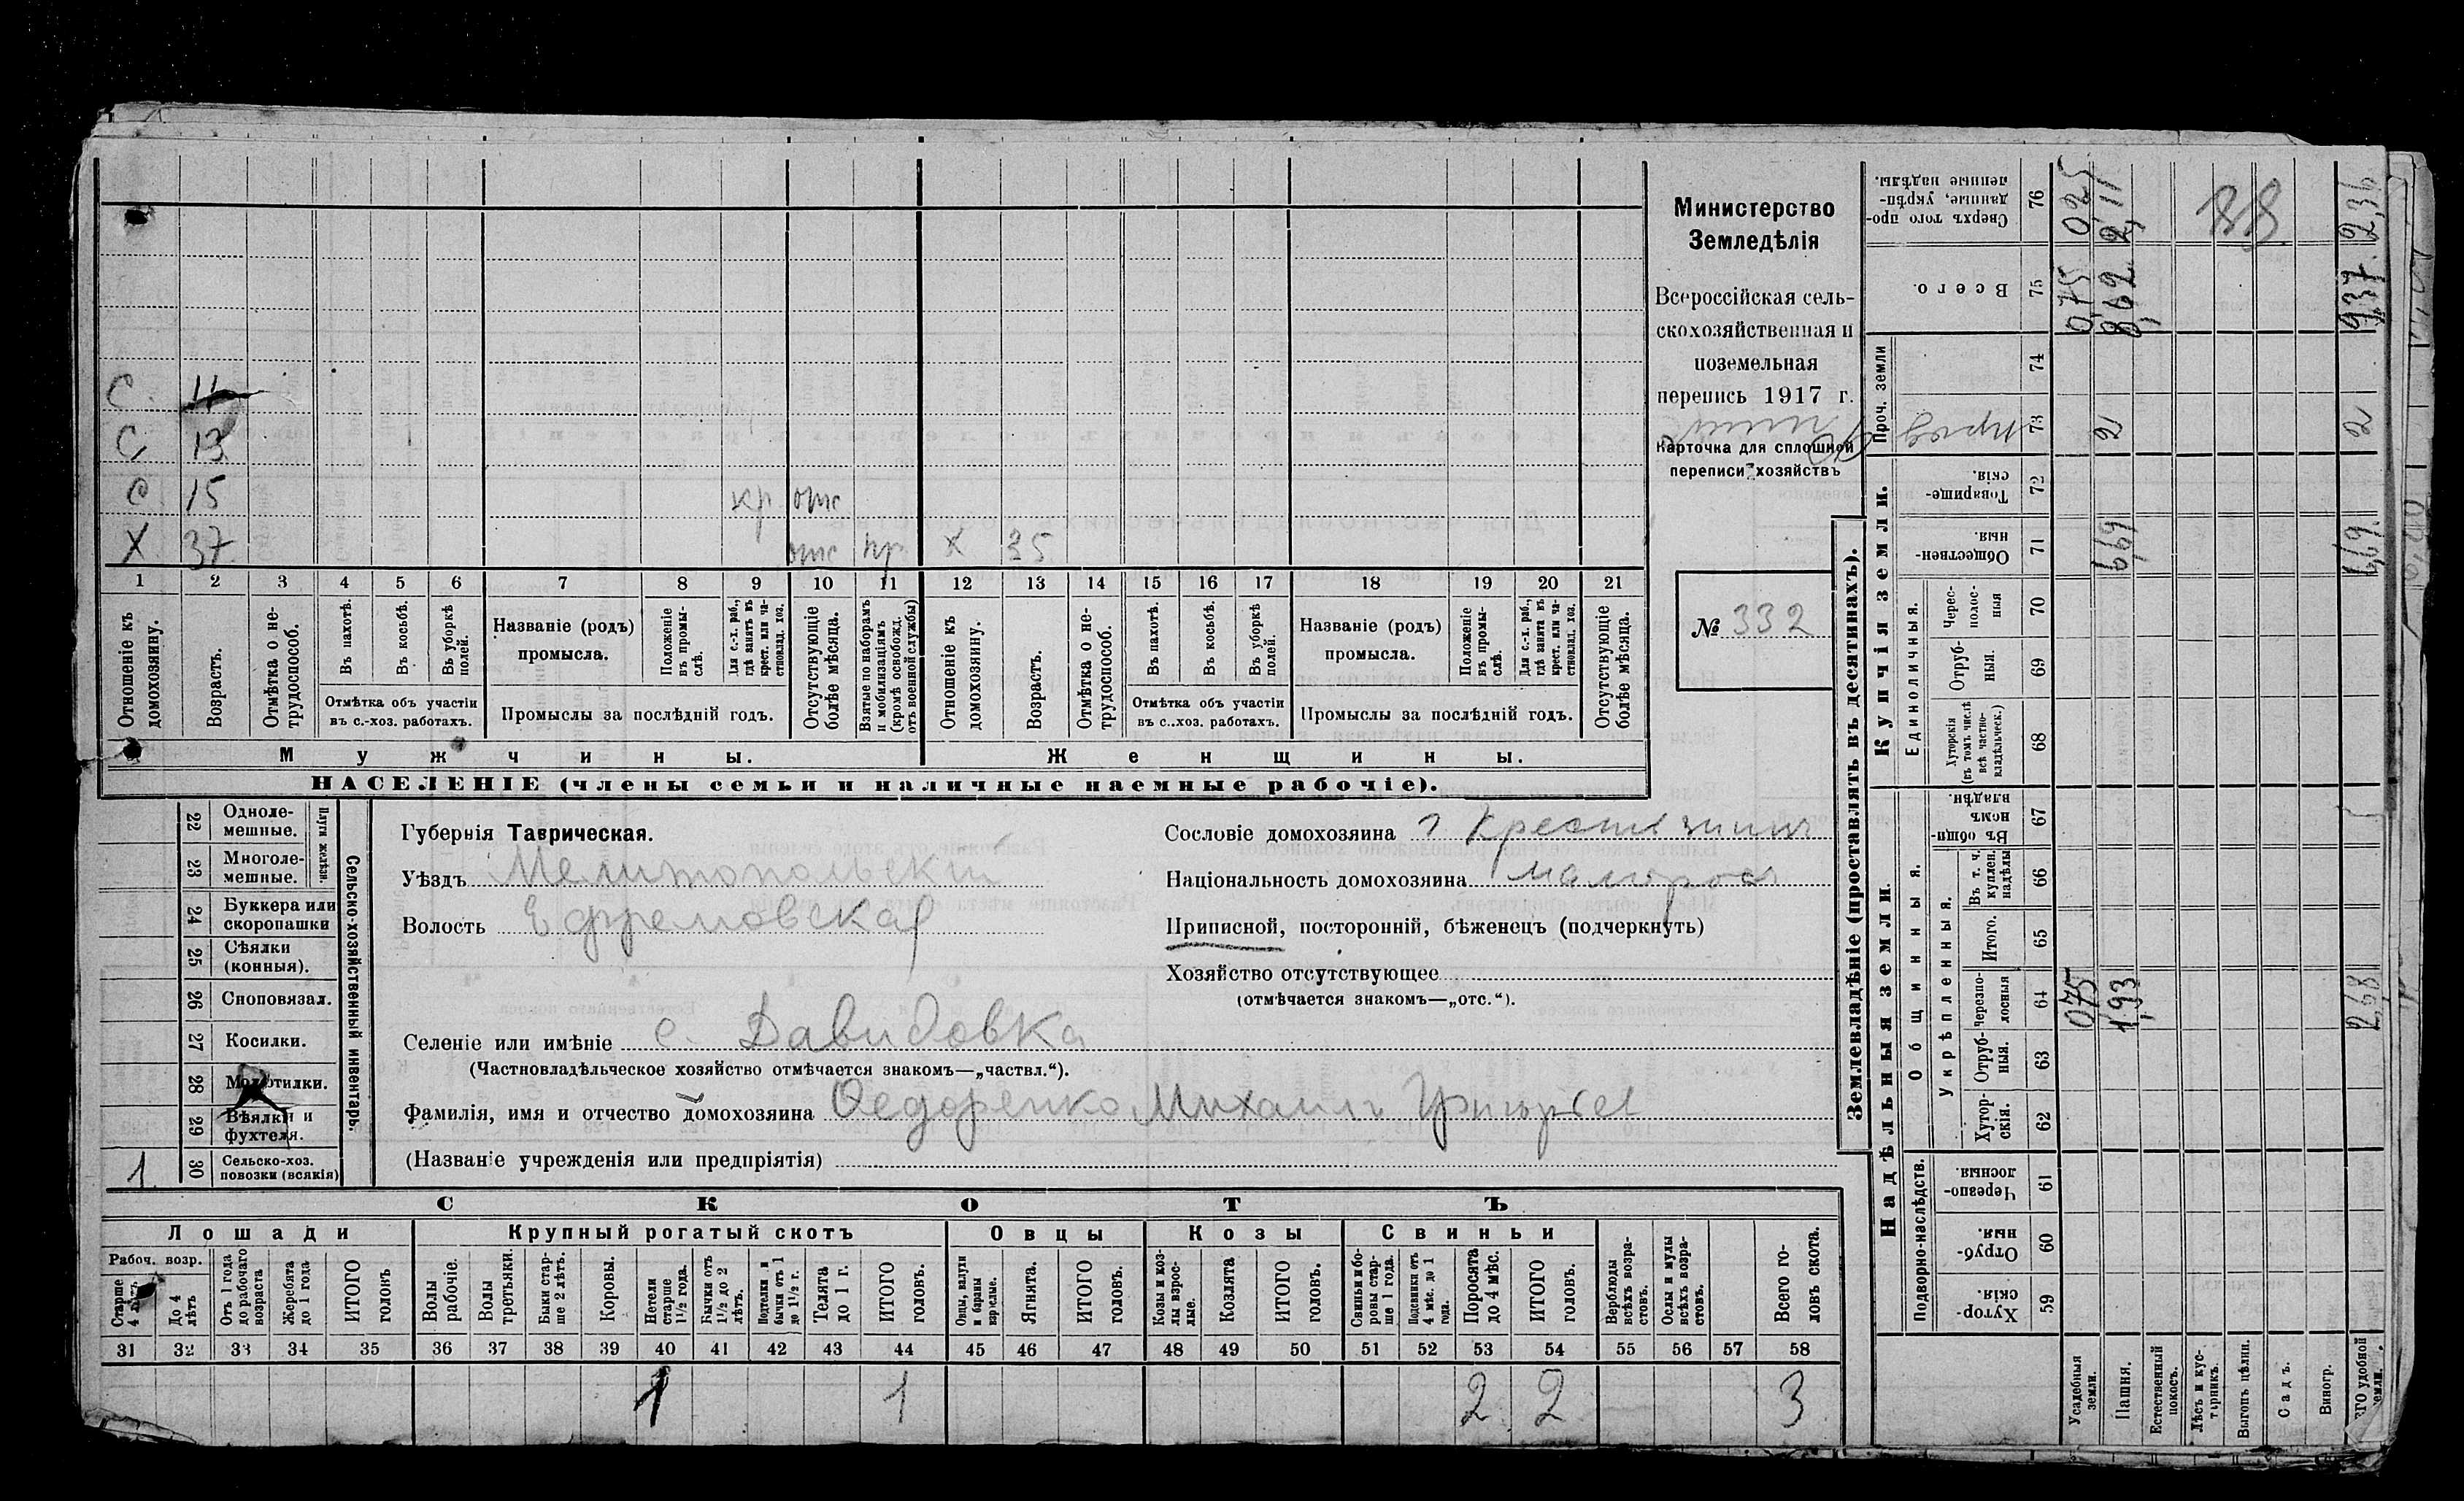 С. 11
С. 13
С 15 кр отс
Х 37 отс пр Х 35
1 2 3 4 5 6 7 8 9 10 11 12 13 14 15 16 17 18 19 20 21
Отношеніе къ домохозяину.
Возрастъ.
Отмѣтка о не-
трудоспособ.
Въ пахотѣ.
Въ косьбѣ.
Въ уборкѣ полей.
Отмѣтка объ участіи
въ с.-хоз. работахъ.
Названіе (родъ)
промысла.
Положеніе въ промы-
слѣ.
Для с.-х. раб.,
гдѣ занятъ въ
крест. или ча-
стновлад. хоз.
Промыслы за послѣдній годъ.
Отсутствующіе
болѣе мѣсяца.
Взятые по наборамъ
и мобилизаціямъ
(кромѣ освобожд.
отъ военной службы)
Отношеніе къ
домохозяину.
Возрастъ.
Отмѣтка о не-
трудоспособ.
Въ пахотѣ.
Въ косьбѣ.
Въ уборкѣ
полей.
Отмѣтка объ участіи
въ с.-хоз. работахъ.
Названіе (родъ)
промысла.
Положеніе
въ промы-
слѣ.
Для с.-х. раб.,
гдѣ занята въ
крест. или ча-
стновлад. хоз.
Промыслы за послѣдній годъ.
Отсутствующіе
болѣе мѣсяца.
Мужчины. Женщины.
НАСЕЛЕНІЕ (члены семьи и наличные наемные рабочіе).
Министерство
Земледѣлія
Всероссійская сель-
скохозяйственная и
поземельная
перепись 1917 г.
Карточка для сплошной
переписи хозяйствъ
№ 332
22 Одноле-
мешные.
23 Многоле-
мешные.
Плуги желѣзн.
24 Буккера или
скоропашки
25 Сѣялки
(конныя).
26 Сноповязал.
27 Косилки.
28 Молотилки.
29 Вѣялки и
фухтеля.
1. 30 Сельско-хоз.
повозки (всякія)
Сельско-хозяйственный инвентарь.
Губернія Таврическая.
Уѣздъ Мелитопольскій
Волость Ефремовская
Селеніе или имѣніе с. Давидовка
(Частновладѣльческое хозяйство отмѣчается знакомъ—„частвл.“).
Фамилія, имя и отчество домохозяина Федоренко Михаилъ
(Названіе учрежденія или предпріятія)
Сословіе домохозяина
Національность домохозяина малорос
Приписной, посторонній, бѣженецъ (подчеркнуть)
Хозяйство отсутствующее
(отмѣчается знакомъ—„отс.“).
СКОТЪ
Лошади Крупный рогатый скотъ Овцы Козы Свиньи
Рабоч. возр.
Старше
4 лѣтъ
До 4
лѣтъ
Отъ 1 года
до рабочаго
возраста
Жеребята
до 1 года
ИТОГО
головъ
Волы
рабочіе.
Волы
третьяки.
Быки стар-
ше 2 лѣтъ.
Коровы.
Нетели
старше
1½ года.
Бычки отъ
1½ до 2
лѣтъ.
Подтелки и
бычки отъ 1
до 1½ г.
Телята
до 1 г.
ИТОГО
головъ.
Овцы, валухи
и бараны
взрослые.
Ягнята.
ИТОГО
головъ.
Козы и коз-
лы взрос-
лые.
Козлята
ИТОГО
головъ.
Свиньи и бо-
ровы стар-
ше 1 года.
Подсвинки отъ
4 мѣс. до 1
года.
Поросята
до 4 мѣс.
ИТОГО
головъ.
Верблюды
всѣхъ возра-
стовъ.
Ослы и мулы
всѣхъ возра-
стовъ.
Всего го-
ловъ скота.
31 32 33 34 35 36 37 38 39 40 41 42 43 44 45 46 47 48 49 50 51 52 53 54 55 56 57 58
1 1 2 2 3
Землевладѣніе (проставлять въ десятинахъ).
Надѣльныя земли. Купчія земли. Проч. земли
Подворно-наслѣдств. Общинныя. Укрѣпленныя. Единоличныя.
Сверхъ того про-
данные, укрѣп-
ленные надѣлы. 76 025 2,11 2,36
Всего. 75 0,75 8,62 9,37
74
73 2 2
Товарище-
скія. 72
Обществен-
ныя. 71 6,69 6,69
Черес-
полос-
ныя 70
Отруб-
ныя. 69
Хуторскія
(въ томъ числѣ
всѣ частно-
владѣльческ.) 68
Въ общин-
номъ
владѣн. 67
Въ т. ч.
куплен.
надѣлы 66
Итого. 65
Черезпо-
лосныя 64 075 1,93 2,68
Отруб-
ныя. 63
Хутор-
скія. 62
Черезпо-
лосныя. 61
Отруб-
ныя. 60
Хутор-
скія. 59
Усадебныя
земли.
Пашня.
Естественный
покосъ.
Лѣсъ и кус-
тарникъ.
Выгонъ цѣлин.
Садъ.
Виногр.
удобной
земли.